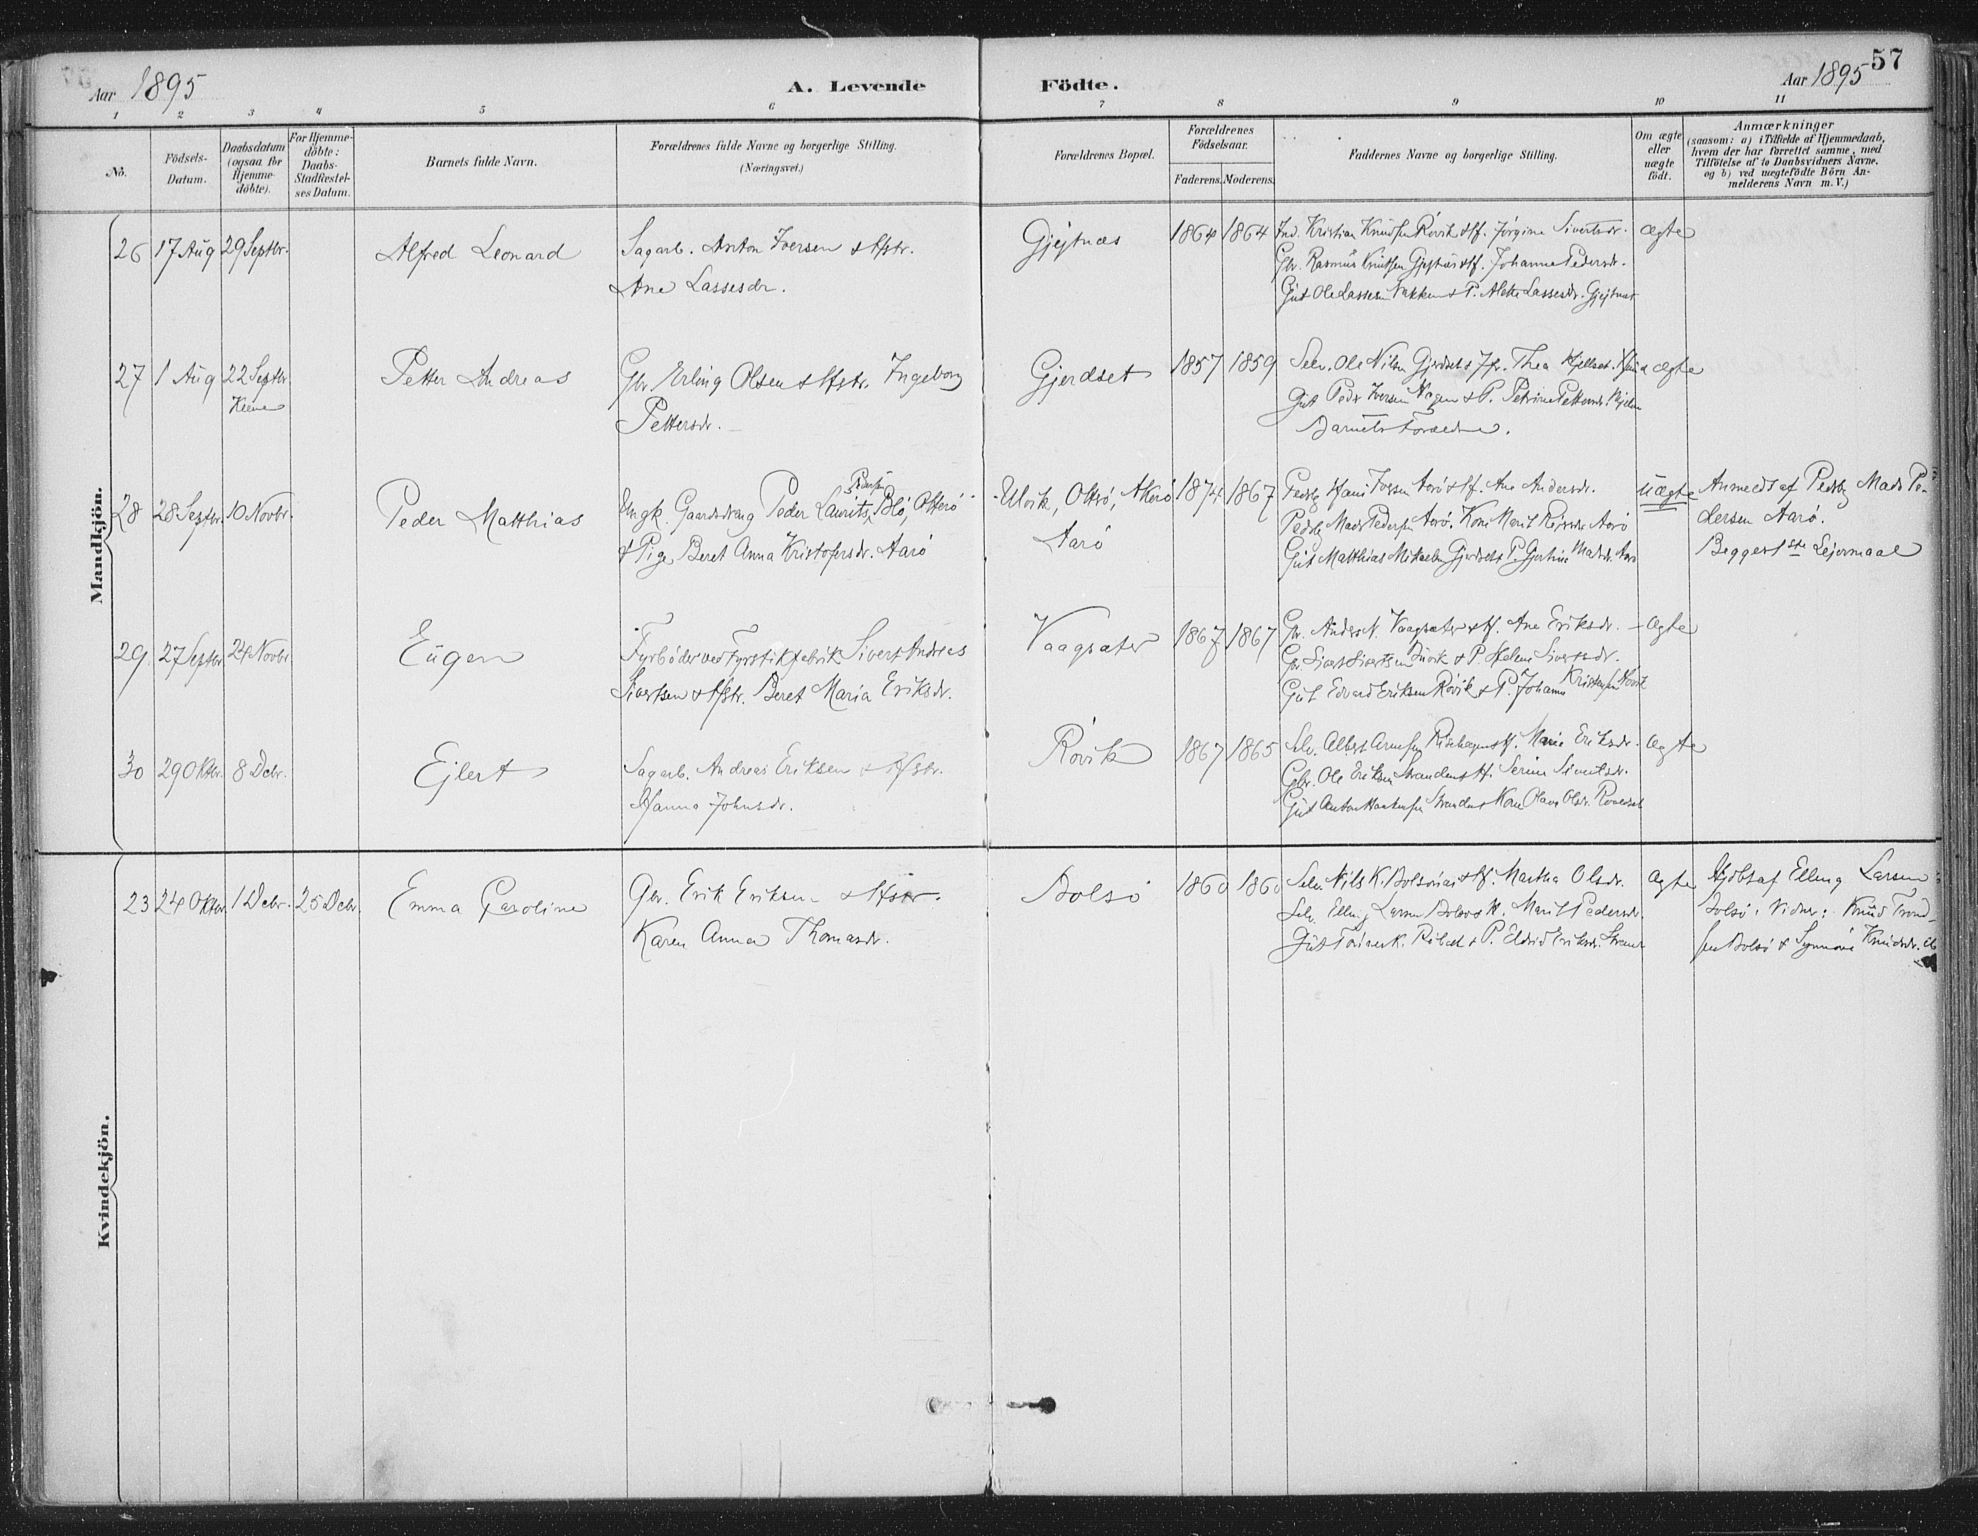 57
Aar 1895
A. Levende Födte.
Aar 1895
1 2 3 4 5 6 7 8 9 10 11
No.
Födsels-Datum.
Daabsdatum (ogsaa for Hjemme-döbte).
For Hjemme-döbte: Daabs-Stadfæstel-ses Datum.
Barnets fulde Navn.
Forældrenes fulde Navne og borgerlige Stilling.
(Næringsvei.)
Forældrenes Bopæl.
Forældrenes Födselsaar.
Faderens. Moderens.
Faddernes Navne og borgerlige Stilling.
Om ægte eller uægte födt.
Anmærkninger
(saasom: a) i Tilfælde af Hjemmedaab,
hvem der har forrettet samme, med
Tilföielse af to Daabsvidners Navne,
og b) ved uægtefödte Börn An-
melderens Navn m. V.)
Mandkjön.
26 17 Aug 29 Septbr. Alfred Leonard
Sagarb. Anton Iversen & Hstr.
Ane Lassesdr.
Gjejtnæs 1864 1864
Ind. Kristian Knudsen Røvik & H. Jørgine Sivertsdr.
Gbr. Rasmus Knutsen Gjejtnæs & H. Johanne Pedersdr.
Gut Ole Lassesen Nakken & P. Alette Lassesdr. Gjejtnæs
ægte
27 1 Aug 22 Septbr. Petter Andreas
Gbr Erling Olsen & Hstr. Ingeborg
Pettersdr.
Gjerdset 1857 1859
Selv. Ole Nilsen Gjerdset & Jfr. Thea
Gut Peder Iversen Hagen & P. Petrine Pettersdr.
Barnets Forældre.
ægte
28 28 Septbr. 10 Novbr. Peder Matthias
Ungk. Gaardsdreng Peder Laurits Blø, Otterø
& Pige Beret Anna Kristofersdr. Aarø
Ulvik, Otrø, Akerø
Aarø
1874 1867
Pedsbg Hans Iversen Aarø & H. Ane Andersdr.
Pedsbg Mads Pedersen Aarø. Kone Marit Aarø
Gut Matthias Mikaelsen Gjerdset & P. Gjertine Madsdr. Aarø
uægte
Anmeldt af Pedsbg Mads Pe-
dersen Aarø.
Begges 1ste Lejermaal
29 27 Septbr 24 Novbr. Eugen
Fyrbøder ved Fyrstikfabrik Sivert Andreas
Sivertsen & Hstr. Beret Maria Eriksdr.
Vaagsæter 1867 1867
Gbr. Anders N. Vaagsæter & H. Ane Eriksdr.
Gbr Sivert Sivertsen & P. Helene Sivertsdr.
Gut Edvard Eriksen Røvik & P. Johanna Røvik
ægte
30 29 Oktbr. 8 Decbr. Ejlert
Sagarb. Andreas Eriksen & Hstr.
Hanna Johnsdr.
Røvik 1867 1865
Selv. Albert Arnesen & H. Marie Eriksdr.
Gbr. Ole Eriksen Stranden & H. Serine Sivertsdr.
Gut Anton Stranden & Kone Olava Olsdr.
ægte
Kvindekjön.
23 24 Oktbr. 1 Decbr. 25 Decbr. Emma Caroline
Gbr. Erik Eriksen & Hstr.
Karen Anna Thomasdr.
Bolsø 1860 1860
Selv. Nils K. Bolsønæs & H. Martha Olsdr.
Selv. Elling Larsen Bolsø & H. Marit Pedersdr.
Gut & P. Eldrid Eriksdr.
ægte
Hjdbt af Elling Larsen
Bolsø. Vidner: Knud Trond-
sen Bolsø & Synnøve Knudsdr.